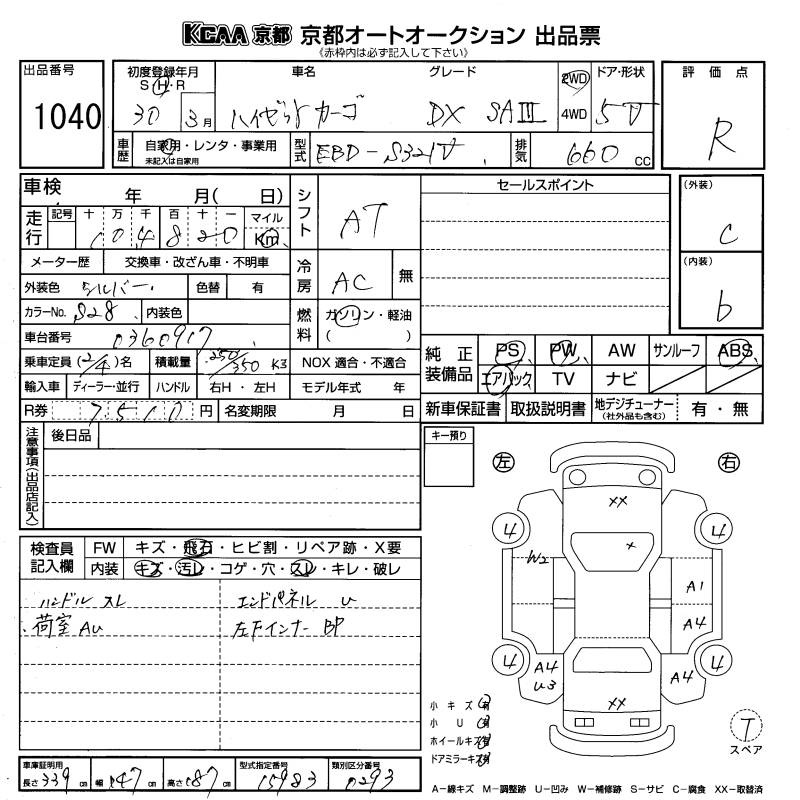 KCAA 京都 京都オートオークション 出品票
《赤枠内は必ず記入して下さい》
出品番号
1040
初度登録年月
S・H・R
30 3月
車名
ハイゼットカーゴ
グレード
DX SAⅢ
2WD
4WD
ドア・形状
5V
評価点
R
車歴
自家用・レンタ・事業用
未記入は自家用
型式
EBD-S321V
排気
660 CC
車検 年 月( 日)
走行
記号 十 万 千 百 十 一 マイル
104820 Km
メーター歴 交換車・改ざん車・不明車
外装色 シルバー 色替 有
カラーNo. S28 内装色
車台番号 0360917
乗車定員 (2/4)名 積載量 250/350 Kg
輸入車 ディーラー・並行 ハンドル 右H・左H
R券 7510 円 名変期限 月 日
シフト AT
冷房 AC 無
燃料 ガソリン・軽油
( )
NOX 適合・不適合
モデル年式 年
セールスポイント
(外装)
C
(内装)
b
純正装備品
PS PW AW サンルーフ ABS
エアバック TV ナビ
新車保証書 取扱説明書 地デジチューナー (社外品も含む) 有・無
注意事項(出品店記入)
後日品
キー預り
検査員記入欄
FW キズ・飛石・ヒビ割・リペア跡・X要
内装 キズ・汚レ・コゲ・穴・スレ・キレ・破レ
ハンドル スレ
荷室 AU
エンドパネル U
左下インナー BP
左 右
XX
4 4
X
W2
A1
A4
4 4
A4
U3
A4
XX
小キズ 有
小U 有
ホイールキズ 有
ドアミラーキズ 有
T
スペア
車庫証明用
長さ 339 cm 幅 147 cm 高さ 187 cm
型式指定番号
15983
類別区分番号
0293
A－線キズ M－調整跡 U－凹み W－補修跡 S－サビ C－腐食 XX－取替済